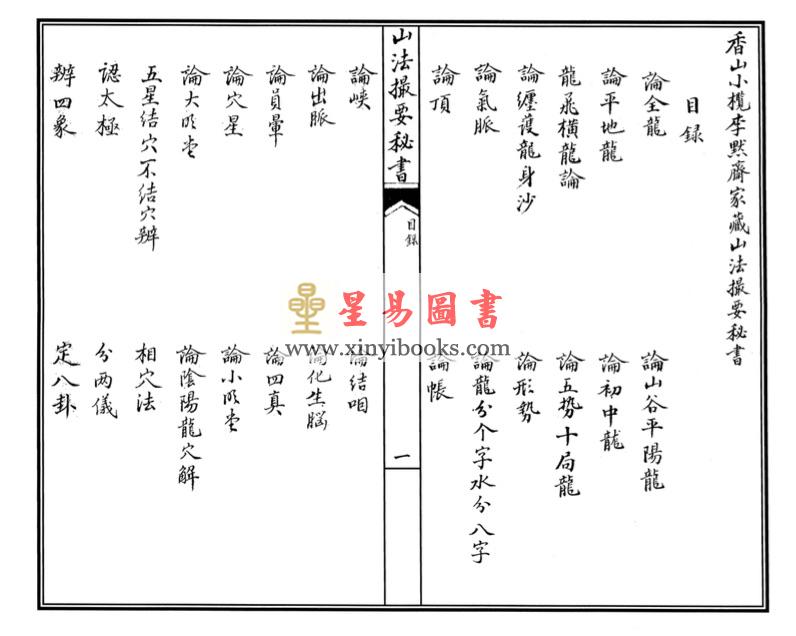 香山小欖李黙齋家藏山法撮要秘書
目録
論全龍
論山谷平陽龍
論平地龍
論初中龍
龍飛横龍論
論五势十局龍
論纏護龍身沙
論形勢
論氣脈
論龍分个字水分八字
論頂
論帳
山法撮要秘書
目録
一
論峽
論結咽
論出脈
論化生腦
論員暈
論四真
論穴星
論小明堂
論大明堂
論陰陽龍穴解
五星結穴不結穴辨
相穴法
認太極
分两儀
辨四象
定八卦
星易圖書
www.xinyibooks.com